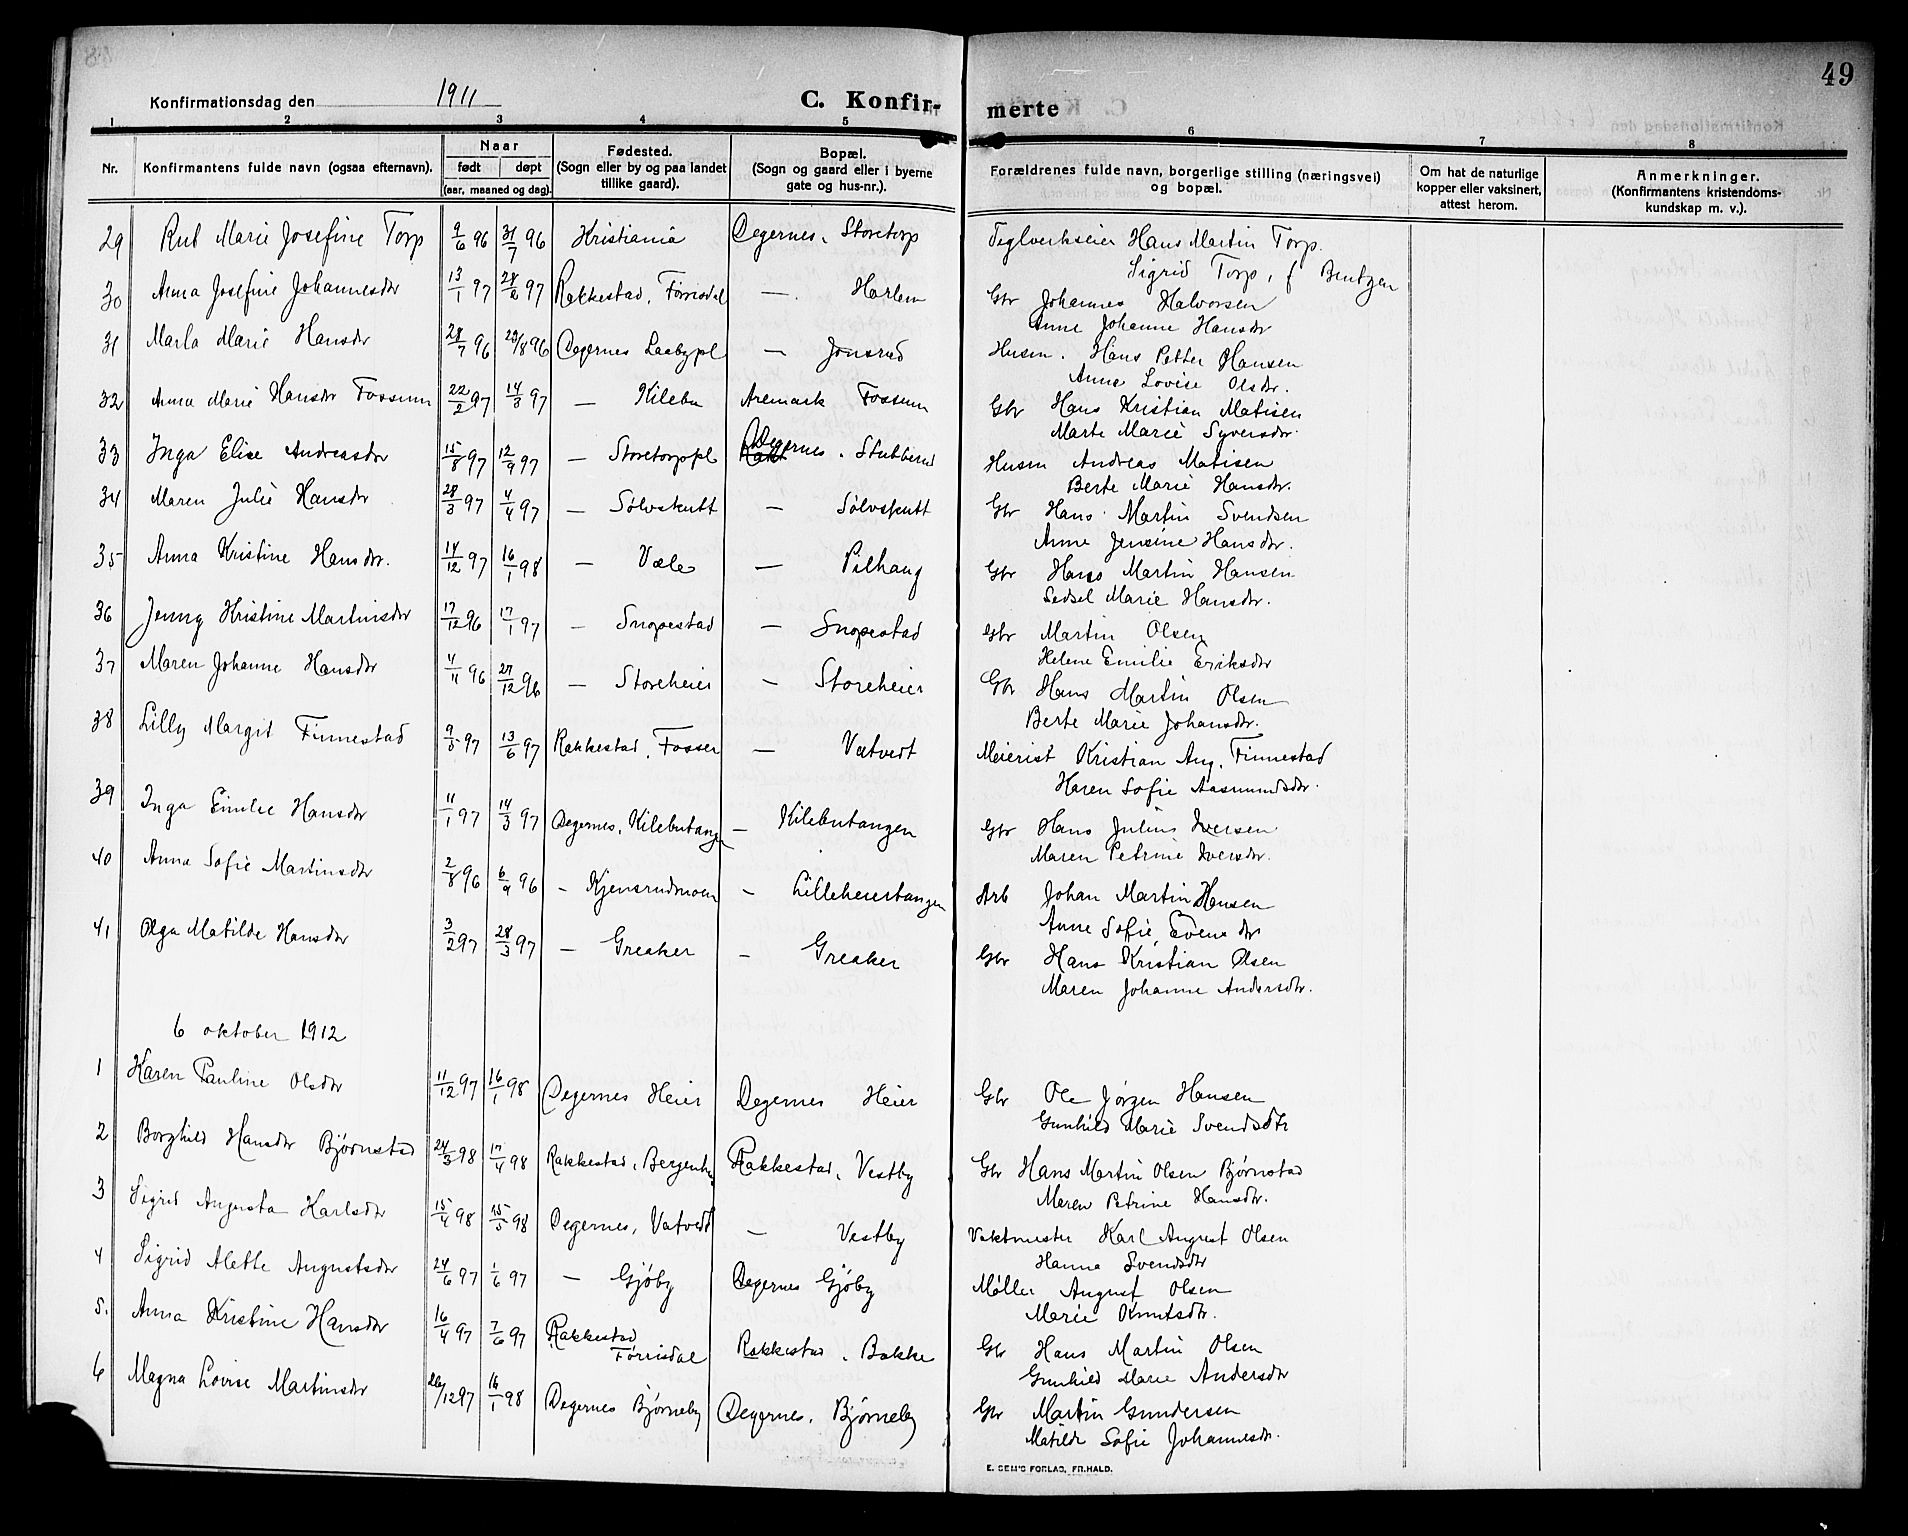 49
Konfirmationsdag den 1911 C. Konfir- merte
1 2 3 4 5 6 7 8
Nr. Konfirmantens fulde navn (ogsaa efternavn). Naar født døpt (aar, maaned og dag). Fødested. (Sogn eller by og paa landet tillike gaard). Bopæl. (Sogn og gaard eller i byerne gate og hus-nr.). Forældrenes fulde navn, borgerlige stilling (næringsvei) og bopæl. Om hat de naturlige kopper eller vaksinert, attest herom. Anmerkninger. (Konfirmantens kristendoms-kundskap m. v.).
29 Rut Marie Josefine Torp 9/6 96 31/7 96 Kristiania Degernes, Storetorp Teglverkseier Hans Martin Torp.
Sigrid Torp, f Bentzen
30 Anna Josefine Johannesdtr 13/1 97 28/2 97 Rakkestad, Førrisdal — Harlem Gbr Johannes Halvorsen
Anne Johanne Hansdtr
31 Marta Marie Hansdtr 28/7 96 23/8 96 Degernes Laebypl — Jonsrud Husm. Hans Petter Hansen
Anne Lovise Olsdtr.
32 Anna Marie Hansdtr Fossum 22/2 97 14/3 97 — Kilebu Aremark Fossum Gbr Hans Kristian Matisen
Marte Marie Syversdtr.
33 Inga Elise Andreasdtr 15/8 97 12/9 97 — Storetorppl Degernes, Stubberud Husm Andreas Matisen
Berte Marie Hansdtr.
34 Maren Julie Hansdtr 28/3 97 4/4 97 — Sølvskutt — Sølvskutt Gbr Hans Martin Svendsen
Anne Jensine Hansdtr.
35 Anna Kristine Hansdtr. 14/12 97 16/1 98 — Væle — Pilhaug Gbr Hans Martin Hansen
Sedsel Marie Hansdtr.
36 Jenny Kristine Martinsdtr 17/12 96 17/1 97 — Snopestad — Snopestad Gbr Martin Olsen
Helene Emilie Eriksdtr
37 Maren Johanne Hansdtr 4/11 96 27/12 96 — Storeheier — Storeheier Gbr Hans Martin Olsen
Berte Marie Johansdtr.
38 Lilly Margit Finnestad 9/5 97 13/6 97 Rakkestad, Fosser — Vatvedt Meierist Kristian Aug. Finnestad
Karen Sofie Aasmundsdtr.
39 Inga Emilie Hansdtr 11/1 97 14/3 97 Degernes, Kilebutangen — Kilebutangen Gbr Hans Julius Iversen
Maren Petrine Iversdtr.
40 Anna Sofie Martinsdtr 2/8 96 6/9 96 — Kjensrudmoen — Lilleheiertangen Arb Johan Martin Hansen
Anne Sofie Evensdtr
41 Olga Matilde Hansdtr 3/2 97 28/3 97 — Greaker — Greaker Gbr Hans Kristian Olsen
Maren Johanne Andersdtr.
6 oktober 1912
1 Karen Pauline Olsdtr 11/12 97 16/1 98 Degernes Heier Degernes Heier Gbr Ole Jørgen Hansen
Gunhild Marie Svendsdtr
2 Borghild Hansdtr Bjørnstad 24/3 98 17/4 98 Rakkestad, Rakkestad, Vestby Gbr Hans Martin Olsen Bjørnstad
Maren Petrine Hansdtr.
3 Sigrid Augusta Karlsdtr 15/4 98 15/5 98 Degernes, Vatvedt — Vestby Vaktmester Karl August Olsen
Hanna Svendsdtr
4 Sigrid Alette Augustsdtr 24/6 97 1/6 97 — Gjøby Degernes Gjøby Møller August Olsen
Marie Knutsdtr.
5. Anna Kristine Hansdtr 16/4 97 7/6 97 Rakkestad Førrisdal Rakkestad, Bakke Gbr Hans Martin Olsen
Gunhild Marie Andersdtr
6 Magna Lovise Martinsdtr 26/12 97 16/1 98 Degernes Bjørneby Degernes, Bjørneby Gbr Martin Gundersen
Matilde Sofie Johannesdtr.
E. SEM'S FORLAG, FR.HALD.